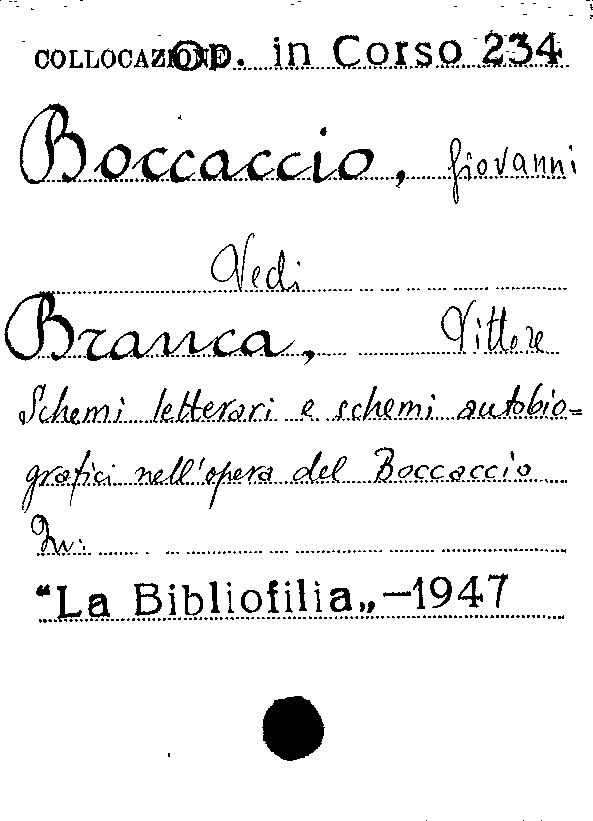 COLLOCAZIONE Op. in Corso 234
Boccaccio, Giovanni
Vedi
Branca, Vittore
Schemi letterari e schemi autobio=
grafici nell'opera del Boccaccio
In:
"La Bibliofilia„ - 1947